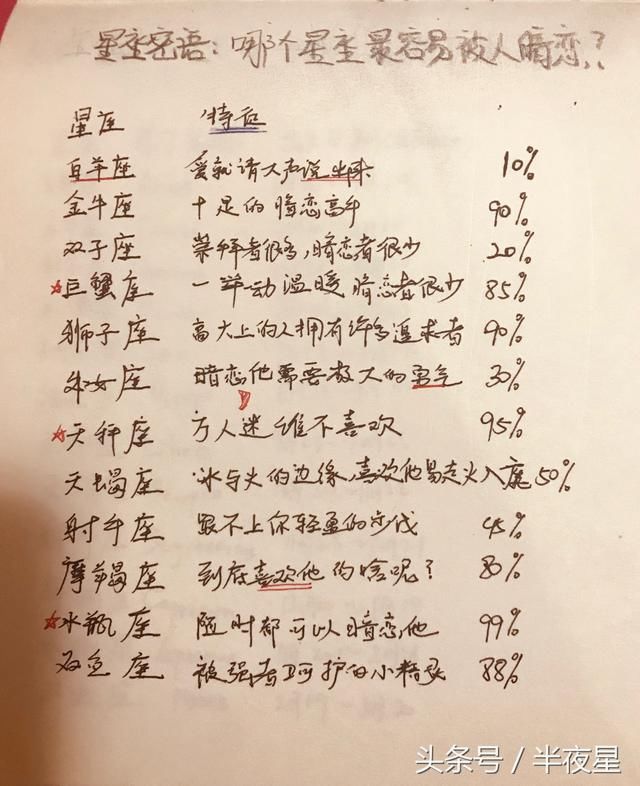 星座密语:哪个星座最容易被人暗恋?
星座 特征
白羊座 爱就请大声说出来 10%
金牛座 十足的暗恋高手 90%
双子座 崇拜者很多,暗恋者很少 20%
☆巨蟹座 一举动温暖 暗恋者很少 85%
狮子座 高大上的人拥有许多追求者 90%
处女座 暗恋他需要极大的勇气 30%
☆天秤座 万人迷谁不喜欢 95%
天蝎座 冰与火的边缘,喜欢他易走火入魔 50%
射手座 跟不上你轻盈的步伐 45%
摩羯座 到底喜欢他的啥呢? 80%
☆水瓶座 随时都可以暗恋他 99%
双鱼座 被强者呵护的小精灵 88%
头条号 / 半夜星